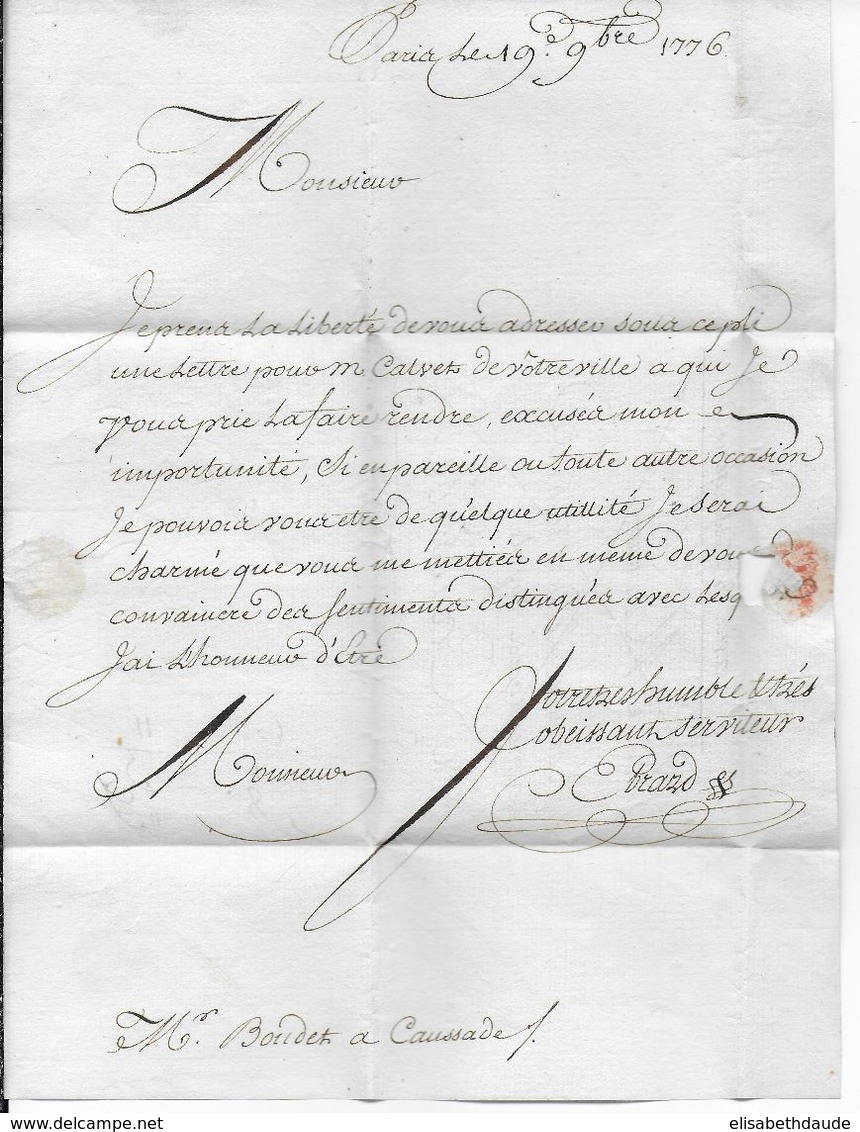 Paris Le 19.e 9bre 1776
Monsieur
Je prens La Liberté de vous adresser sous ce pli
une Lettre pour m Calvet de vôtre ville a qui Je
vous prie La faire rendre, excusés mon
importunité, Si en pareille ou toute autre occasion
Je pouvois vous etre de quelque utillité Je Serai
charmé que vous me mettiés en meme de vous
convaincre des Sentiments distingués avec Lesq
J'ai L'honneur d'Etre
Monsieur
Votre tres humble & trés
obeissant serviteur
Ebrard
Mr. Boudet a Caussade
elisabethdaude